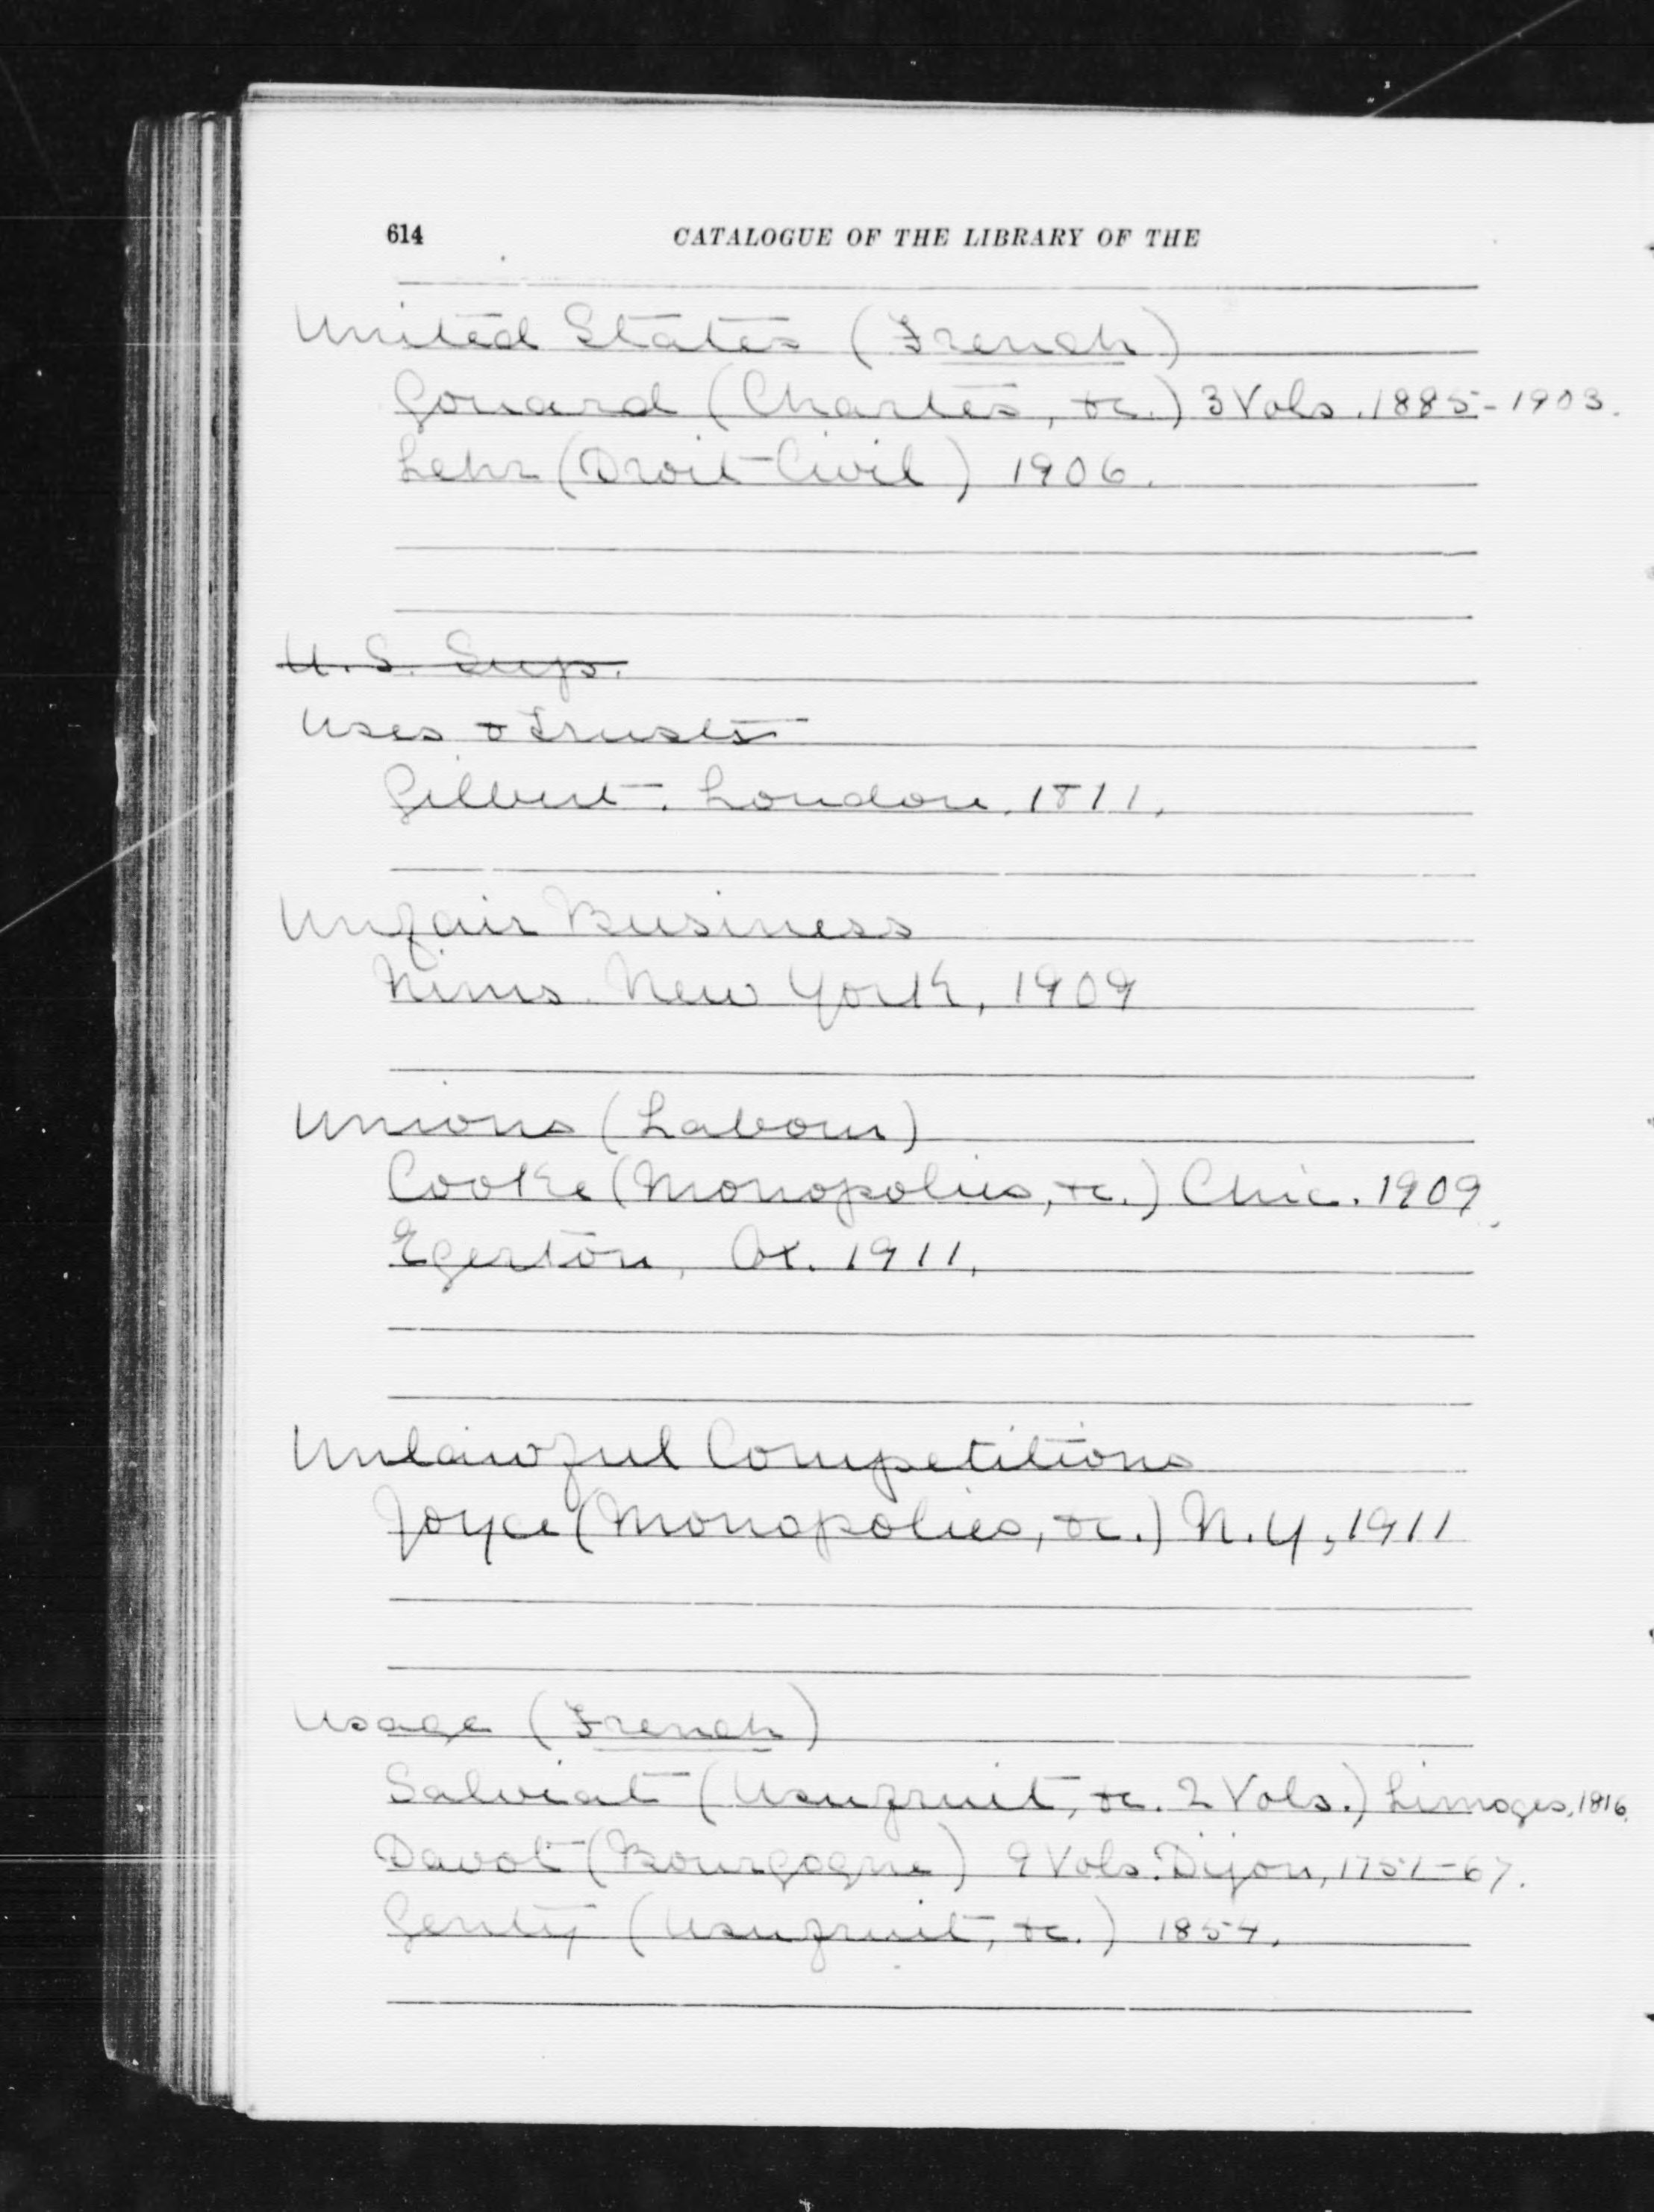 614 CATALOGUE OF THE LIBRARY OF THE
United States (French)
Gouard (Chartes, &c.) 3 Vols. 1885-1903.
Lehr (Droit Civil) 1906.
U.S. Sup.
Uses & Trusts
Gilbert. London, 1811.
Unfair Business
Nims. New York, 1909
Unions (Labour)
Cooke (Monopolies, &c.) Chic. 1909.
Egerton, Ox. 1911.
Unlawful Competitions
Joyce (Monopolies, &c.) N.Y, 1911
Usage (French)
Salviat (Usufruit, &c. 2 Vols.) Limoges, 1816.
Davot (Bourgogne) 9 Vols. Dijon, 1751-67.
Genty (Usufruit, &c.) 1854.